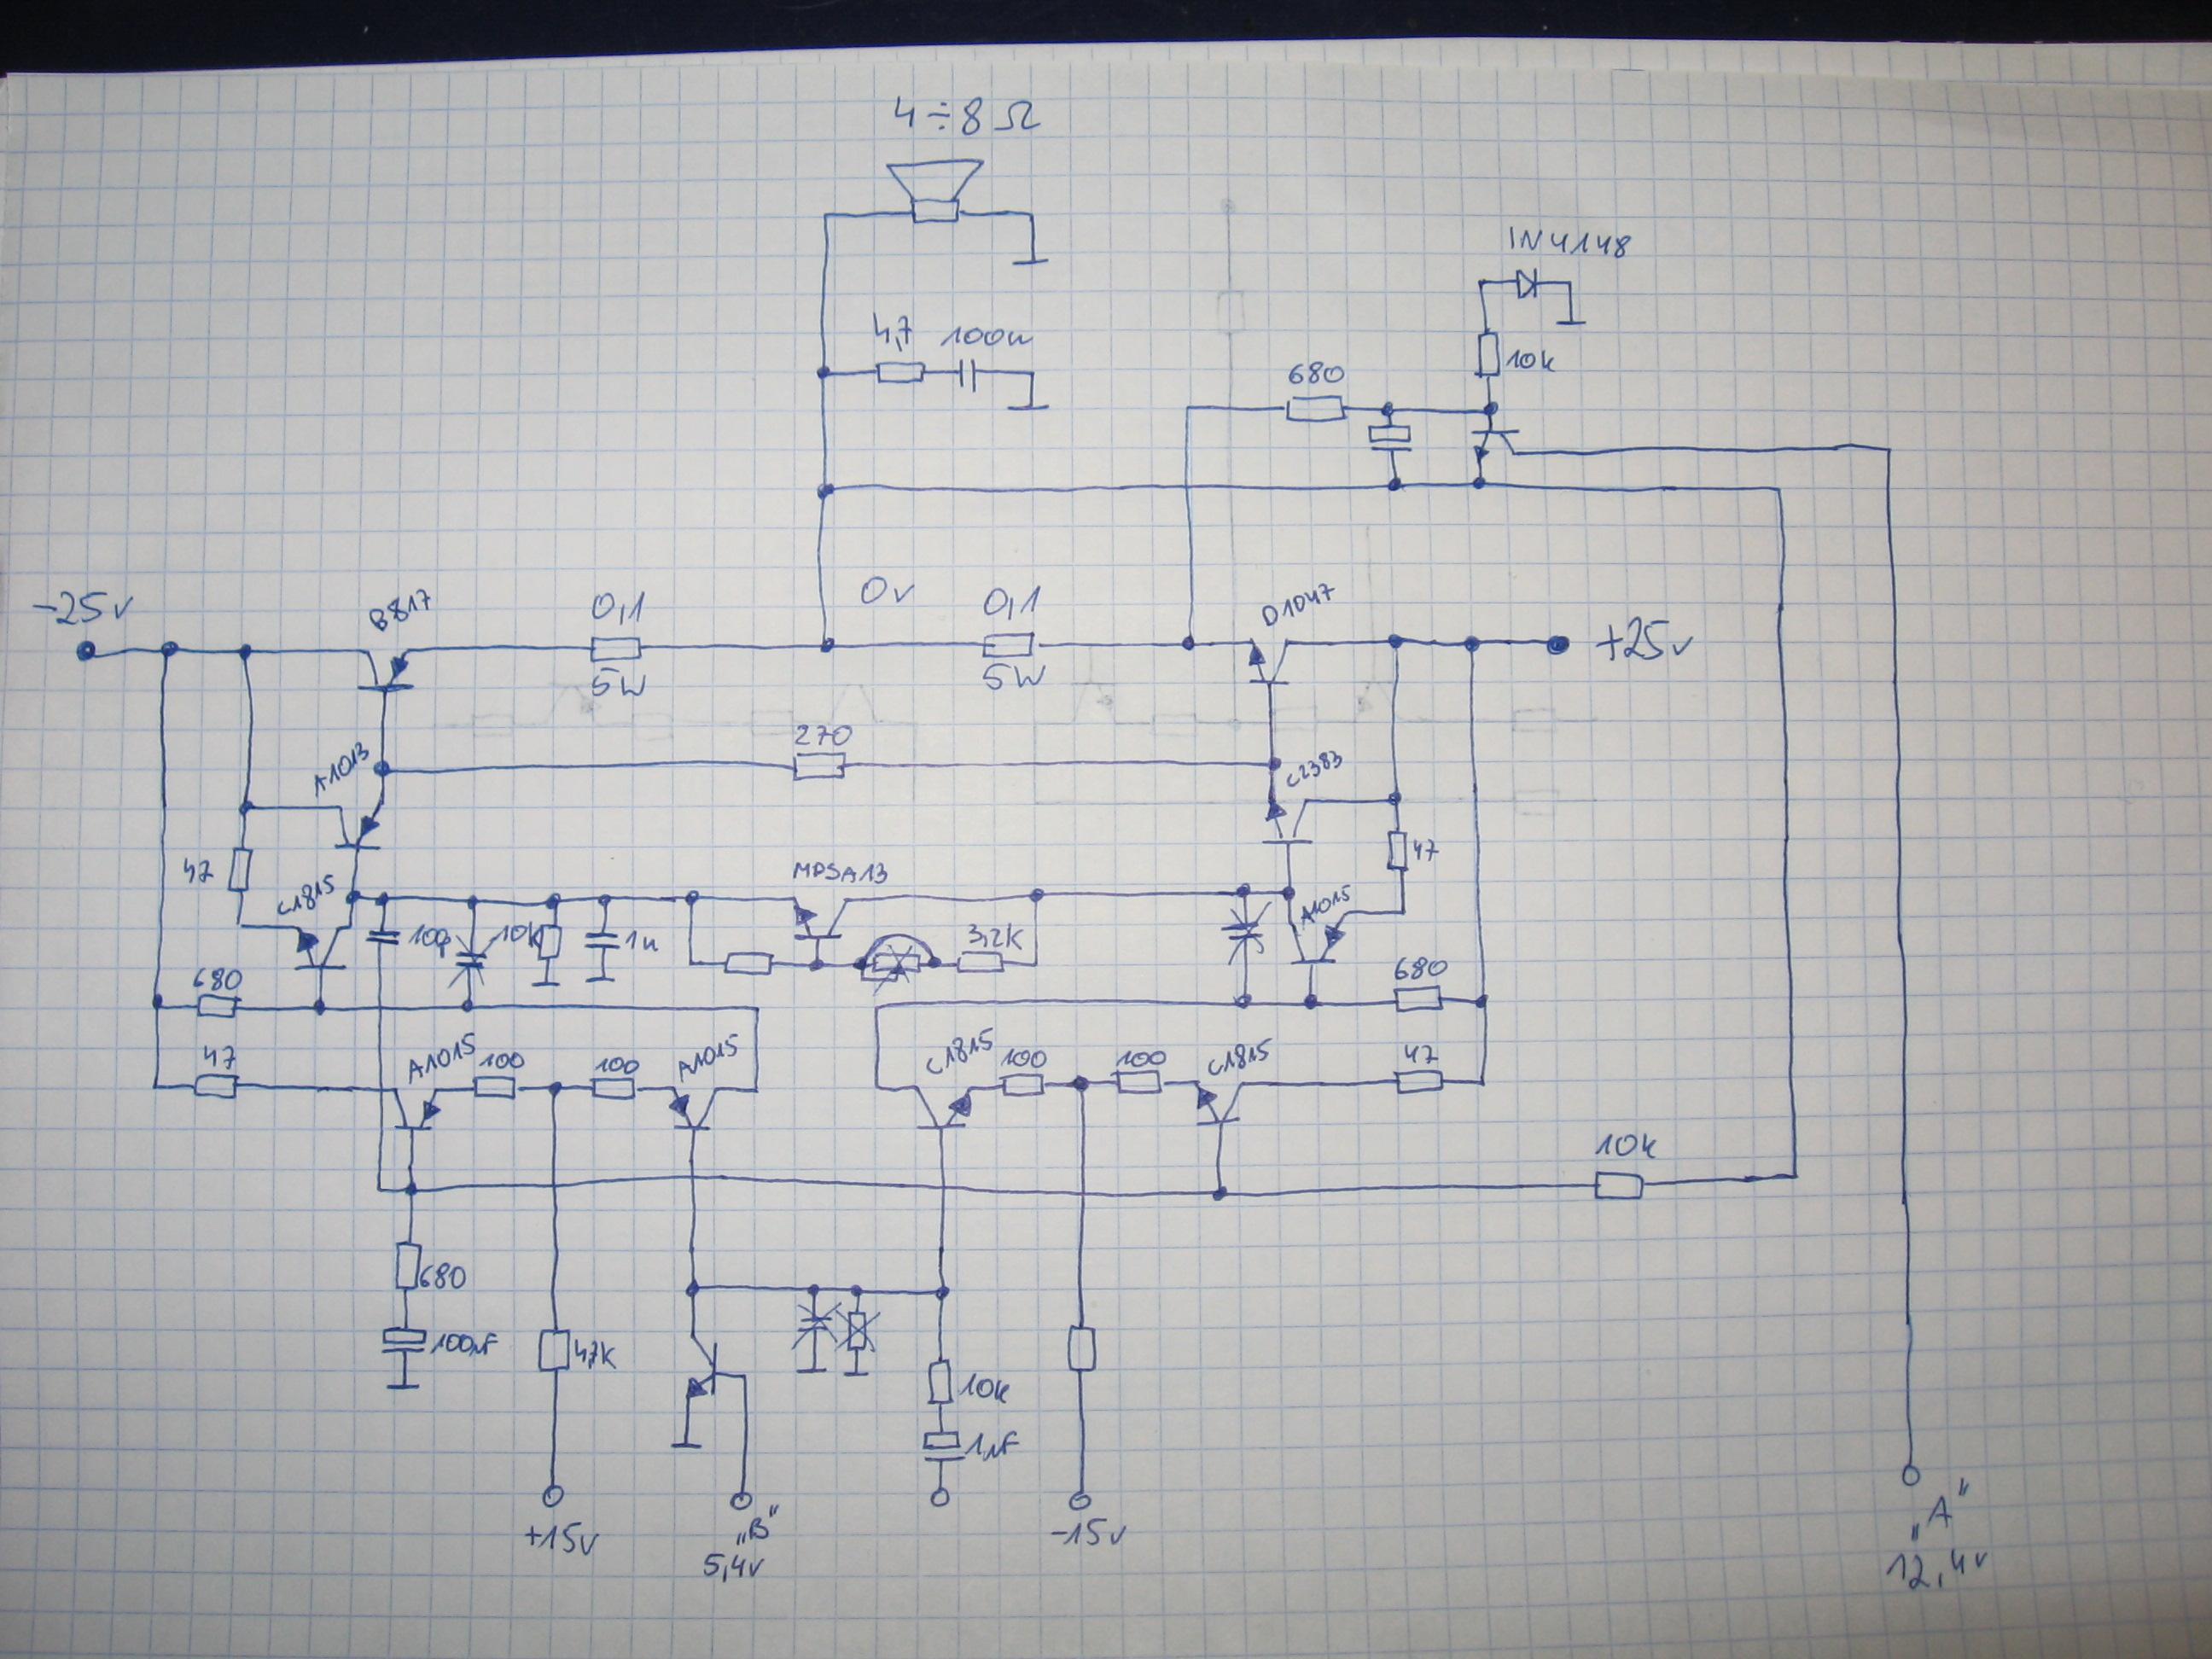 4÷8 Ω
1N4148
4,7 100n
10k
680
-25v
B817
0,1
0v
0,1
D1047
+25v
5W
5W
270
A1013
C2383
47
C1815
MPSA13
47
A1015
100p
10k
1n
3,2K
680
680
47
A1015
100
100
A1015
C1815
100
100
C1815
47
10k
680
100µF
47K
10k
1µF
+15v
„B"
5,4v
-15v
„A"
12,4v